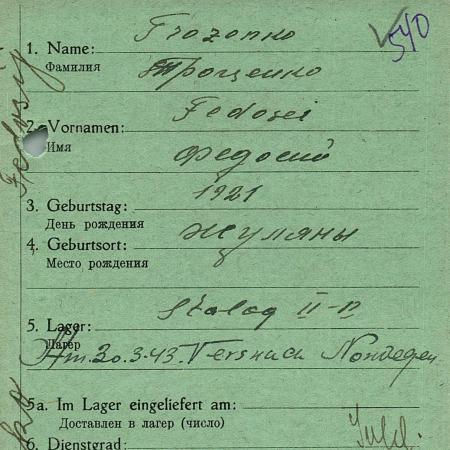 540
Trozenko
1. Name:
Фамилия
Троценко
Fedosei
2. Vornamen:
Имя
Федосий
1921
3. Geburtstag:
День рождения
Жуляны
4. Geburtsort:
Место рождения
Stalag II-D
5. Lager:
Лагер
Am. 30.3.43. Versuch Norwegen
5a. Im Lager eingeliefert am:
Доставлен в лагер (число)
6. Dienstgrad: